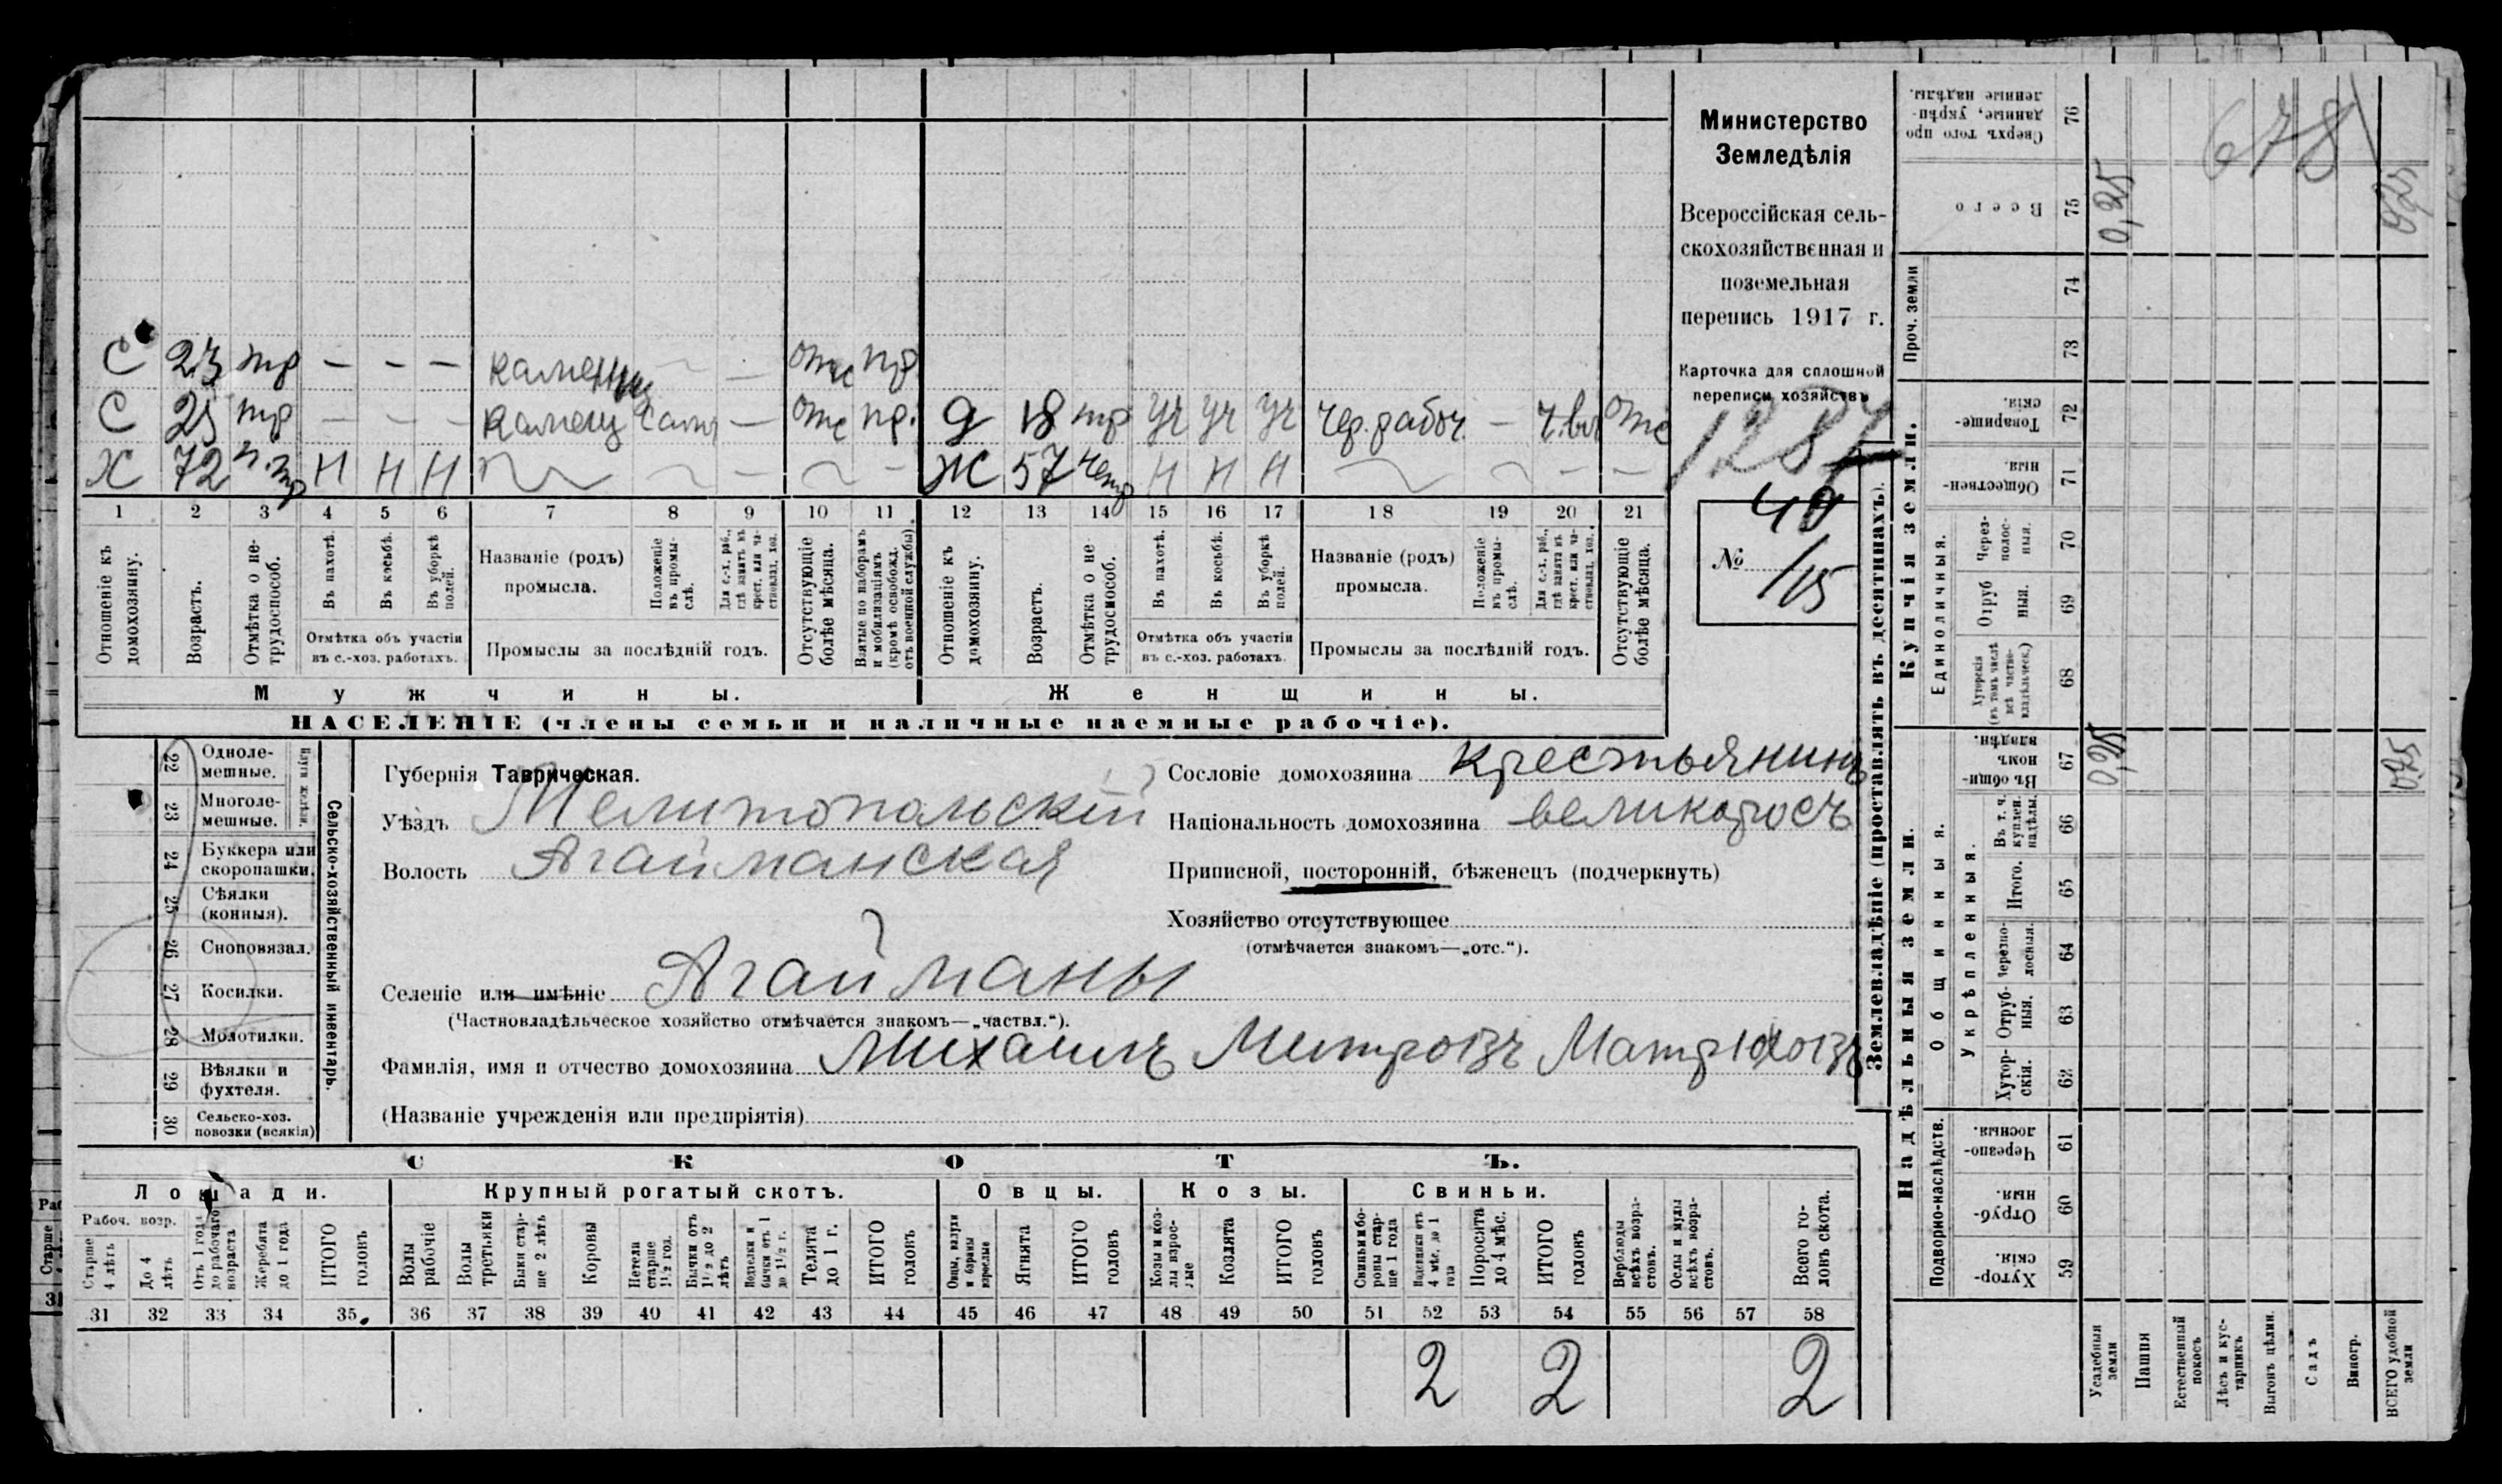 Министерство
Земледѣлія
Всероссійская сель-
скохозяйственная и
поземельная
перепись 1917 г.
Карточка для сплошной
переписи хозяйствъ
128
№ 40
/15
С 23 тр — — — каменщ — отс пр
С 25 тр — — — каменщ — отс пр. д 18 тр уч уч уч чер. рабоч. — ч.вл отс
Х 72 н.тр н н н — — Ж 57 н н н — — — —
1 2 3 4 5 6 7 8 9 10 11 12 13 14 15 16 17 18 19 20 21
Отношеніе къ домохозяину.
Возрастъ.
Отмѣтка о не-трудоспособ.
Въ пахотѣ.
Въ косьбѣ.
Въ уборкѣ полей.
Отмѣтка объ участіи
въ с.-хоз. работахъ.
Названіе (родъ)
промысла.
Положеніе въ промы-слѣ.
Для с.-х. раб., гдѣ занятъ въ крест. или ча-стновлад. хоз.
Промыслы за послѣдній годъ.
Отсутствующіе болѣе мѣсяца.
Взятые по наборамъ и мобилизаціямъ (кромѣ освобожд. отъ военной службы).
Отношеніе къ домохозяину.
Возрастъ.
Отмѣтка о не-трудоспособ.
Въ пахотѣ.
Въ косьбѣ.
Въ уборкѣ полей.
Отмѣтка объ участіи
въ с.-хоз. работахъ.
Названіе (родъ)
промысла.
Положеніе въ промы-слѣ.
Для с.-х. раб., гдѣ занятъ въ крест. или ча-стновлад. хоз.
Промыслы за послѣдній годъ.
Отсутствующіе болѣе мѣсяца.
Мужчины.
Женщины.
НАСЕЛЕНІЕ (члены семьи и наличные наемные рабочіе).
Сельско-хозяйственный инвентарь.
22 Одноле-мешные.
23 Многоле-мешные.
24 Буккера или скоропашки.
25 Сѣялки (конныя).
26 Сноповязал.
27 Косилки.
28 Молотилки.
29 Вѣялки и фухтеля.
30 Сельско-хоз. повозки (всякія)
Губернія Таврическая.
Уѣздъ Мелитопольскій
Волость Агайманская
Селеніе или имѣніе Агайманы
(Частновладѣльческое хозяйство отмѣчается знакомъ—„частвл.“).
Фамилія, имя и отчество домохозяина Михаилъ
(Названіе учрежденія или предпріятія)
Сословіе домохозяина крестьянинъ
Національность домохозяина великоросъ
Приписной, посторонній, бѣженецъ (подчеркнуть)
Хозяйство отсутствующее
(отмѣчается знакомъ—„отс.“).
СКОТЪ.
Лошади.
Крупный рогатый скотъ.
Овцы.
Козы.
Свиньи.
Рабоч. возр.
Старше 4 лѣтъ
До 4 лѣтъ
Отъ 1 года до рабочаго возраста
Жеребята до 1 года
ИТОГО головъ
Волы рабочіе
Волы третьяки
Быки стар-ше 2 лѣтъ
Коровы
Нетели старше 1½ год.
Бычки отъ 1½ до 2 лѣтъ
Телята до 1 г.
ИТОГО головъ
Овцы, валухи и бараны взрослые
Ягнята
ИТОГО головъ
Козы и коз-лы взрос-лые
Козлята
ИТОГО головъ
Свиньи и бо-ровы стар-ше 1 года
Поросята до 4 мѣс.
ИТОГО головъ
Верблюды всѣхъ возра-стовъ.
Ослы и мулы всѣхъ возра-стовъ.
Всего го-ловъ скота.
31 32 33 34 35 36 37 38 39 40 41 42 43 44 45 46 47 48 49 50 51 52 53 54 55 56 57 58
2 2 2
Землевладѣніе (проставлять въ десятинахъ).
Надѣльныя земли.
Купчія земли.
Проч. земли
Подворно-наслѣдств.
Общинныя.
Укрѣпленныя.
Единоличныя.
Сверхъ того про данные, укрѣп-ленные надѣлы. 76
Всего 75
74
73
Товарище-скія. 72
Обществен-ныя. 71
Через-полос-ныя. 70
Отруб ныя. 69
Хуторскія (въ томъ числѣ всѣ частно-владѣльческ.) 68
Въ общи-номъ владѣн. 67
Въ т. ч. куплен. надѣлы. 66
Итого. 65
Черезпо-лосныя. 64
Отруб-ныя. 63
Хутор-скія. 62
Черезпо-лосныя. 61
Отруб-ныя. 60
Хутор-скія. 59
0,25
0,25
678
Усадебныя земли
Пашня
Естественный покосъ
Лѣсъ и кус-тарникъ
Выгонъ цѣлин.
Садъ
Виногр.
ВСЕГО удобной земли